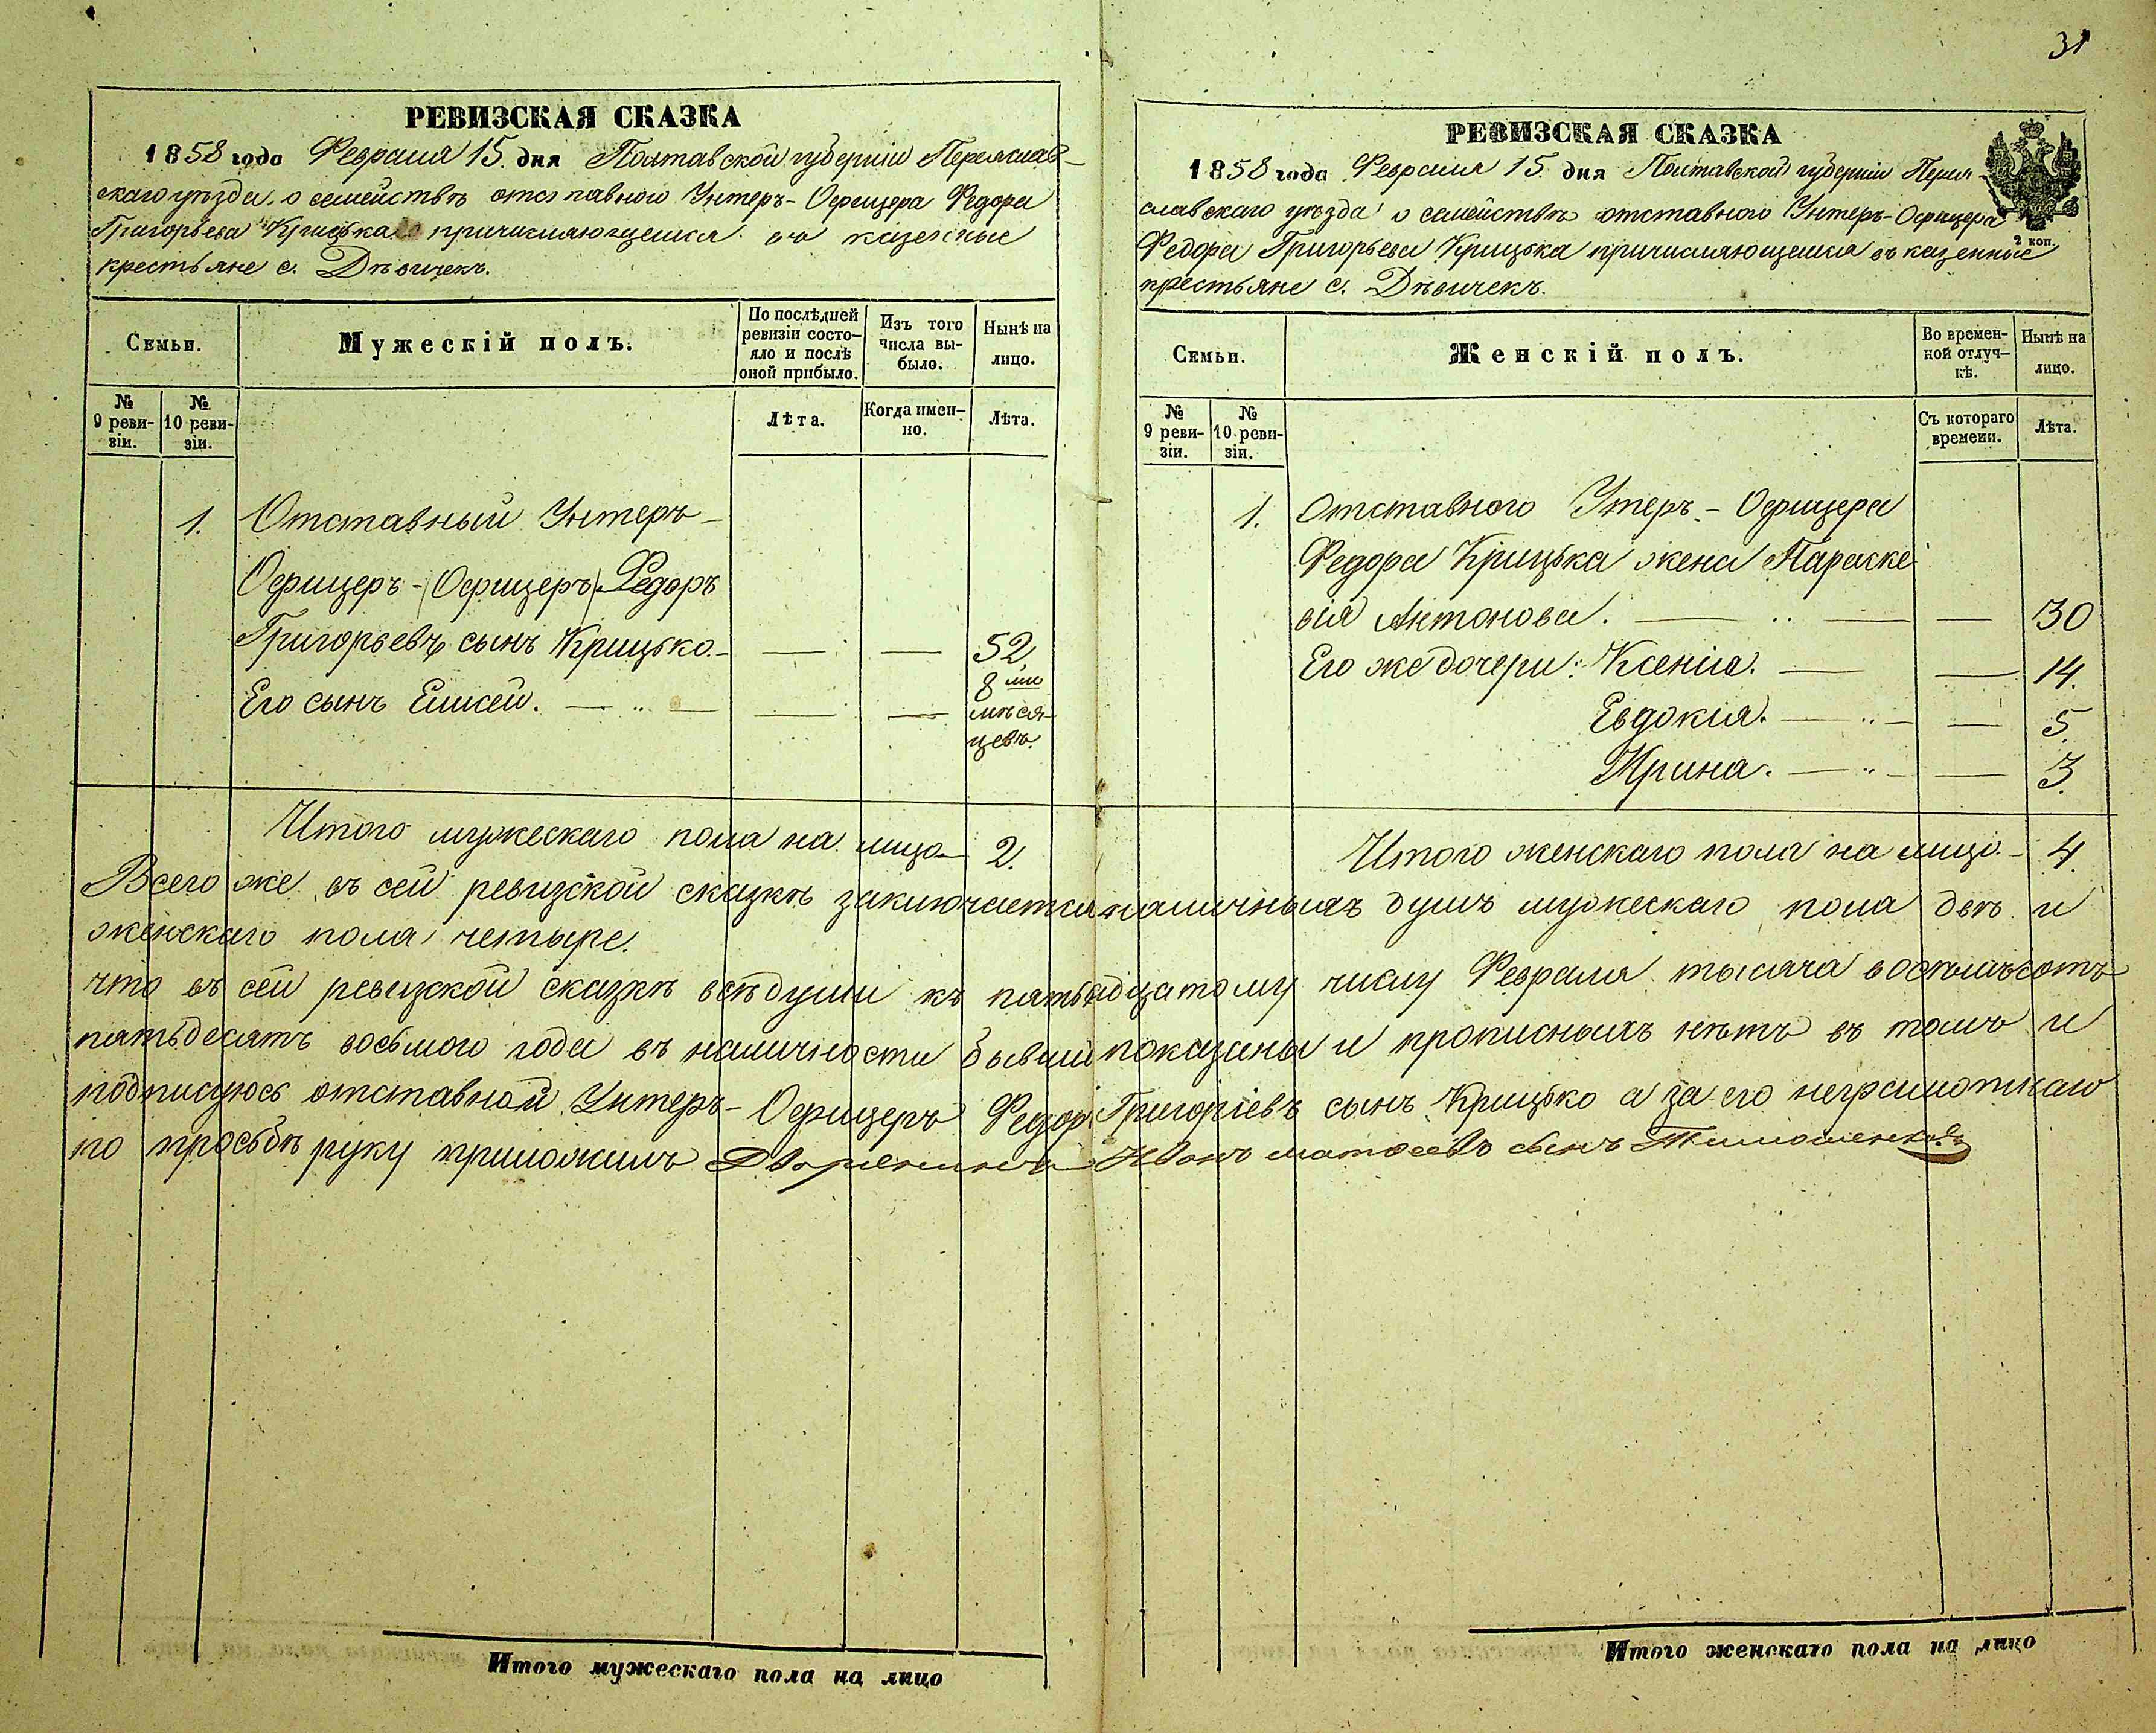 31
РЕВИЗСКАЯ СКАЗКА
1858 года Февраля 15. дня Полтавской губерніи Переяслав-
скаго уѣзда, о семействѣ отставного Унтеръ-Офицера Федора
Григорьева Крицька причисляющемся въ казенные
крестьяне с. Дѣвичекъ.
Семьи.
Мужескій полъ.
По послѣдней
ревизіи состо-
яло и послѣ
оной прибыло.
Изъ того
числа вы-
было.
Нынѣ на
лицо.
№
9 реви-
зіи.
№
10 реви-
зіи.
Лѣта.
Когда имен-
но.
Лѣта.
1. Отставный Унтеръ-
Офицеръ-(Офицеръ) Федоръ
Григорьевъ сынъ Крицько. — — 52
Его сынъ Елисей. — „ — — — 8 ми
мѣся-
цевъ.
Итого мужескаго пола на лицо — 2.
РЕВИЗСКАЯ СКАЗКА
1858 года Февраля 15. дня Полтавской губерніи Перея-
славскаго уѣзда о семействѣ отставного Унтеръ-Офицера
2 коп.
Федора Григорьева Крицька причисляющемся въ казенные
крестьяне с. Дѣвичекъ.
Семьи.
Женскій полъ.
Во времен-
ной отлуч-
кѣ.
Нынѣ на
лицо.
№
9 реви-
зіи.
№
10 реви-
зіи.
Съ котораго
времени.
Лѣта.
1. Отставного Утеръ-Офицера
Федора Крицька жена Параске
вія Антонова. — „ — — 30
Его же дочери: Ксенія. — — 14.
Евдокія. — „ — — 5.
Ирина. — „ — — 3.
Итого женскаго пола на лицо. — 4.
Всего же въ сей ревизской сказкѣ заключается наличныхъ душъ мужескаго пола двѣ и
женскаго пола четыре.
что въ сей ревизской сказкѣ всѣ души къ пятьнадцатому числу Февраля тысяча восемьсотъ
пятьдесятъ восьмого года въ наличности бывши показаны и прописныхъ нѣтъ въ томъ и
подписуюсь отставной Унтеръ-Офицеръ Федоръ Григоріевъ сынъ Крицько а за его неграмотнаго
по просьбѣ руку приложилъ Дворенинъ Иванъ матвеевъ сынъ Тимошенко
Итого мужескаго пола на лицо
Итого женскаго пола на лицо